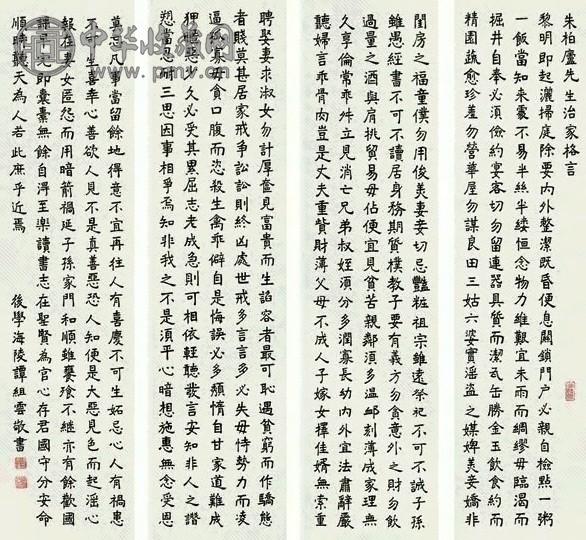 朱柏廬先生治家格言
黎明即起灑掃庭除要內外整潔既昏便息關鎖門戶必親自檢點一粥
一飯當知來處不易半絲半縷恒念物力維艱宜未雨而綢繆毋臨渴而
掘井自奉必須儉約宴客切勿留連器具質而潔瓦缶勝金玉飲食約而
精園蔬愈珍羞勿營華屋勿謀良田三姑六婆實淫盜之媒婢美妾嬌非
閨房之福童僕勿用俊美妻妾切忌豔粧祖宗雖遠祭祀不可不誠子孫
雖愚經書不可不讀居身務期質樸教子要有義方勿貪意外之財勿飲
過量之酒與肩挑貿易毋佔便宜見貧苦親鄰須多溫卹刻薄成家理無
久享倫常乖舛立見消亡兄弟叔姪須分多潤寡長幼內外宜法肅辭嚴
聽婦言乖骨肉豈是丈夫重貲財薄父母不成人子嫁女擇佳婿無索重
聘娶妻求淑女勿計厚奩見富貴而生諂容者最可恥遇貧窮而作驕態
者賤莫甚居家戒爭訟訟則終凶處世戒多言言多必失毋恃勢力而凌
逼孤寡毋貪口腹而恣殺生禽乖僻自是悔誤必多頹惰自甘家道難成
狎暱惡少久必受其累屈志老成急則可相依輕聽發言安知非人之譖
愬當忍耐三思因事相爭焉知非我之不是須平心暗想施惠無念受恩
莫忘凡事當留餘地得意不宜再往人有喜慶不可生妒忌心人有禍患
不可生喜幸心善欲人見不是真善惡恐人知便是大惡見色而起淫心
報在妻女匿怨而用暗箭禍延子孫家門和順雖饔飧不繼亦有餘歡國
課早完即囊橐無餘自得至樂讀書志在聖賢為官心存君國守分安命
順時聽天為人若此庶乎近焉
後學海陵譚組雲敬書
中华收藏网